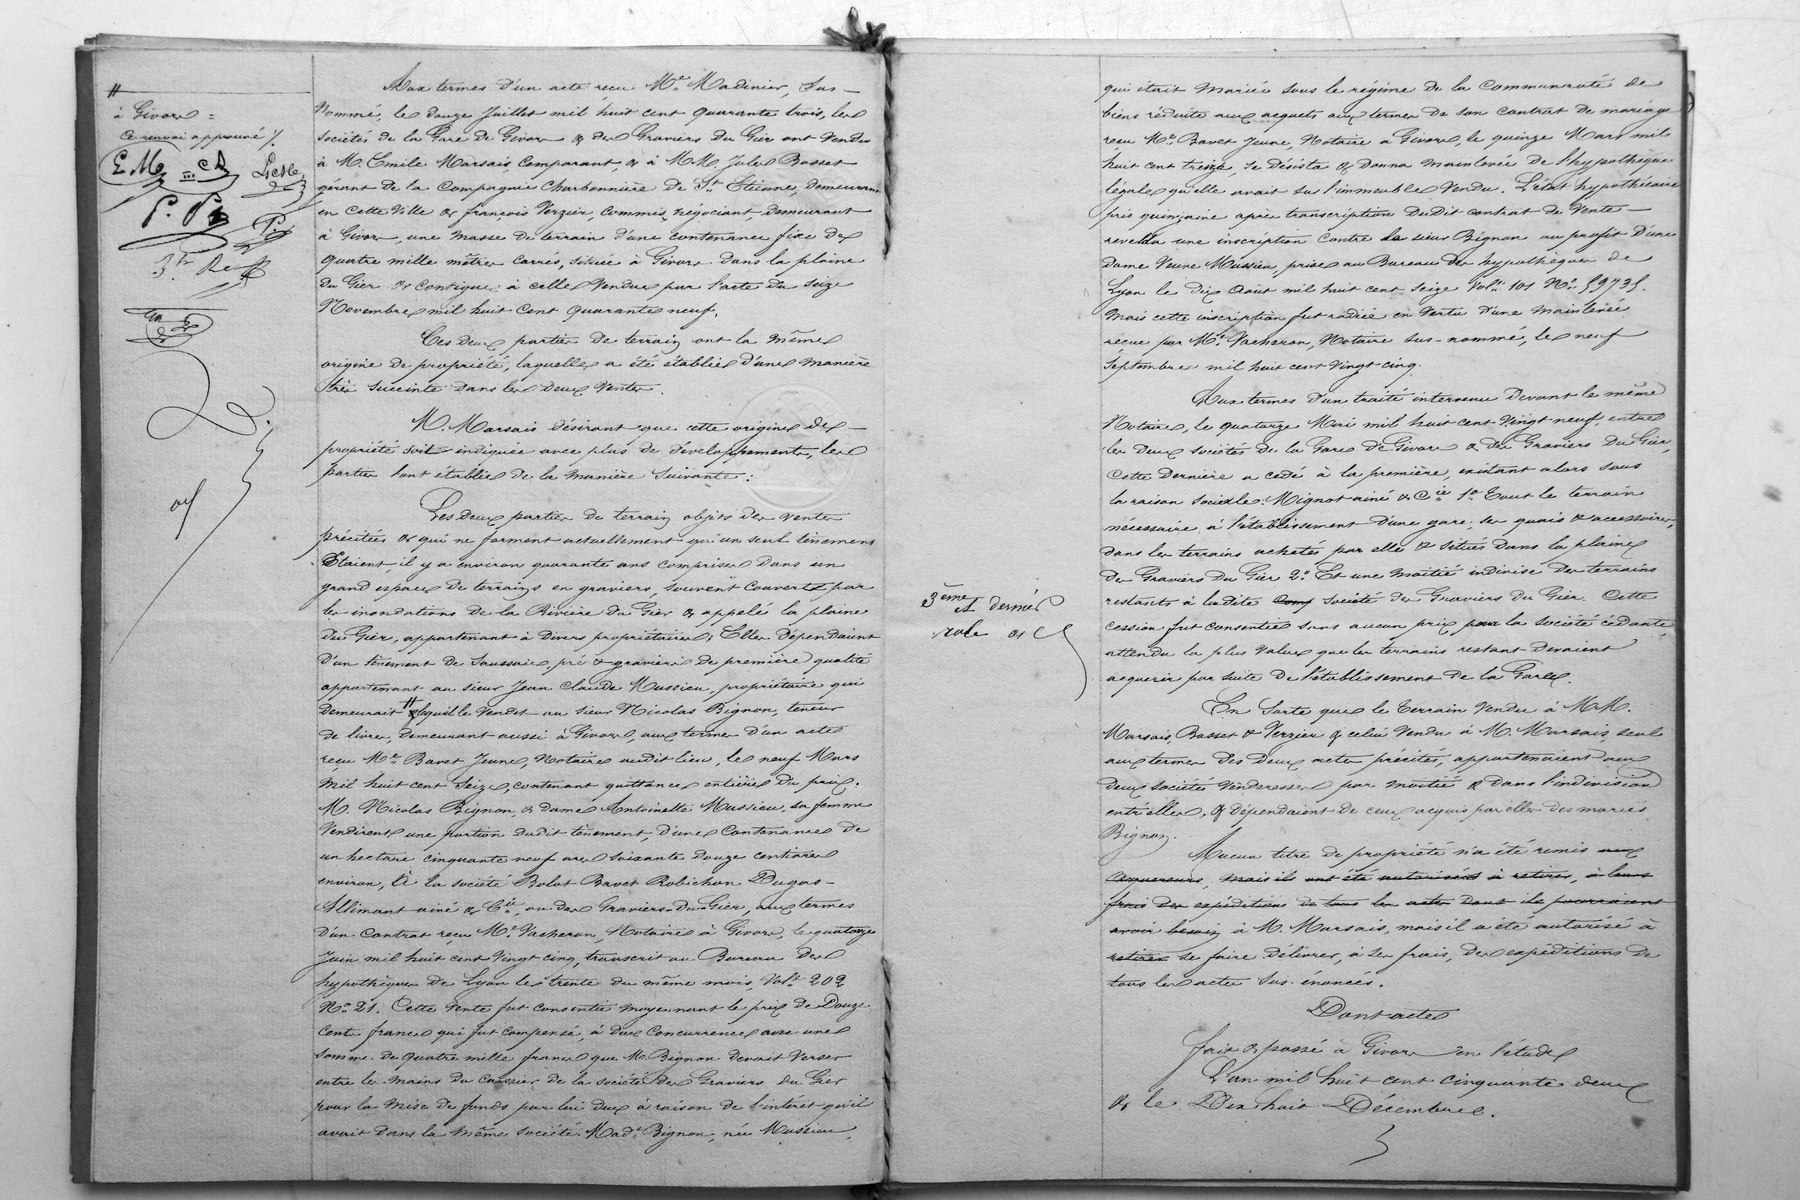 à Givors =
Ce renvoi approuvé ٪.
E M
P. P
Aux termes d'un acte reçu Me Madinier, sus-
nommé, le douze Juillet mil huit cent quarante trois, les
sociétés de la Gare de Givors & des Graviers du Gier ont vendu
à M. Emile Marsais, Comparant, & à M.M. Jules Bosset
gérant de la Compagnie Charbonnière de St Etienne, demeurant
en cette ville & françois Verzier, Commis négociant, demeurant
à Givors, une masse de terrain d'une contenance fixe de
quatre mille mètres carrés, située à Givors dans la plaine
du Gier & contigue à celle vendue par l'acte du seize
Novembre mil huit cent quarante neuf.
Ces deux parties de terrain ont la même
origine de propriété, laquelle a été établie d'une manière
très succinte dans les deux ventes.
M. Marsais désirant que cette origine de
propriété soit indiquée avec plus de développements, les
parties l'ont établie de la manière suivante:
Les deux parties de terrain objets des ventes
précitées & qui ne forment actuellement qu'un seul tènement
Etaient, il y a environ quarante ans comprises dans un
grand espace de terrains en graviers, souvent couverts par
les inondations de la Rivière du Gier & appelé la plaine
du Gier, appartenant à divers propriétaires; Elles dépendaient
d'un tènement de Saussaie, pré & graviers de première qualité
appartenant au sieur Jean Claude Mussieu, propriétaire qui
demeurait # lequel le vendit au sieur Nicolas Bignon, teneur
de livres, demeurant aussi à Givors, aux termes d'un acte
reçu Me Bavet Jeune, Notaire audit lieu, le neuf Mars
mil huit cent seize, contenant quittance entière du prix.
M. Nicolas Bignon & dame Antoinette Mussieu, sa femme
vendirent une portion dudit tènement, d'une contenance de
un hectare cinquante neuf ares soixante douze centiares
environ, à la société Bolot Bavet Robichon Dugas-
Allimant ainé & Cie, ou des Graviers du Gier, aux termes
d'un Contrat reçu Me Vacheron, Notaire à Givors, le quatorze
Juin mil huit cent vingt cinq, transcrit au Bureau des
hypothèques de Lyon le trente du même mois, Vole 202
No 21. Cette vente fut consentie moyennant le prix de Douze
cents francs qui fut compensé, à due concurrence avec une
somme de quatre mille francs que M. Bignon devait verser
entre les mains du caissier de la société des Graviers du Gier
pour la mise de fonds par lui due à raison de l'intérêt qu'il
avait dans la même société. Made Bignon, née Mussieu,
qui était mariée sous le régime de la Communauté de
biens réduite aux acquets aux termes de son contrat de mariage
reçu Me Bavet Jeune, Notaire à Givors, le quinze Mars mil
huit cent treize, se désista & donna mainlevée de l'hypothèque
légale qu'elle avait sur l'immeuble vendu. L'état hypothécaire
pris quinzaine après transcription dudit contrat de vente
révéla une inscription contre le sieur Bignon au profit d'une
dame Veuve Mussieu, prise au Bureau des hypothèques de
Lyon le dix Août mil huit cent seize Vole 101 No 59735.
Mais cette inscription fut radiée en vertu d'une mainlevée
reçue par Me Vacheron, Notaire sus-nommé, le neuf
Septembre mil huit cent vingt-cinq.
Aux termes d'un traité intervenu devant le même
Notaire, le quatorze Mai mil huit cent vingt neuf, entre
les deux sociétés de la Gare de Givors & des Graviers du Gier,
cette dernière a cédé à la première, existant alors sous
la raison sociale: Mignot ainé & Cie 1o Tout le terrain
nécessaire à l'établissement d'une gare, ses quais & accessoires,
dans les terrains achetés par elle & situés dans la plaine
des Graviers du Gier 2o Et une moitié indivise des terrains
restants à ladite Comp société des Graviers du Gier. Cette
cession fut consentie sans aucun prix par la société cédante,
attendu la plus value que les terrains restant devaient
acquerir par suite de l'établissement de la Gare.
En sorte que le terrain vendu à M.M.
Marsais, Bosset & Verzier & celui vendu à M. Marsais, seul
aux termes des deux actes précités, appartenaient aux
deux sociétés venderesses par moitié & dans l'indivision
entr'elles, & dépendaient de ceux acquis par elles des mariés
Bignon.
Aucun titre de propriété n'a été remis aux
acquéreurs, mais ils ont été autorisés à retirer, à leurs
frais des expéditions de tous les actes dont ils pourraient
avoir besoin à M. Marsais, mais il a été autorisé à
retirer se faire délivrer, à ses frais, des expéditions de
tous les actes sus-énoncés.
Dont acte
fait & passé à Givors en l'étude
L'an mil huit cent cinquante deux
& le Dix huit Décembre.
3ème
et dernier
role